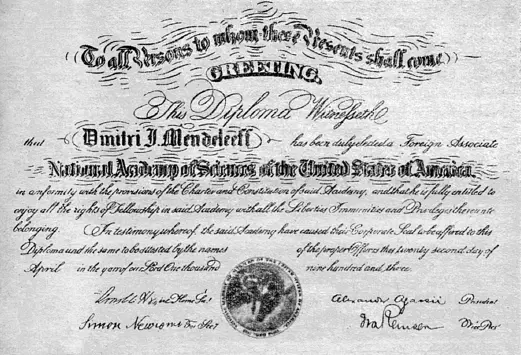 To all Persons to whom these Presents shall come
GREETING.
This Diploma Witnesseth
that Dmitri I. Mendeleeff has been duly elected a Foreign Associate
National Academy of Sciences of the United States of America
in conformity with the provisions of the Charter and Constitution of said Academy, and that he is fully entitled to
enjoy all the rights of Fellowship in said Academy with all the Liberties Immunities and Privileges thereunto
belonging. In testimony whereof, the said Academy have caused their Corporate Seal to be affixed to this
Diploma and the same to be attested by the names of the proper Officers this twenty second day of
April in the year of our Lord One thousand nine hundred and three.
Alexander Agassiz President
Simon Newcomb For Sec'y Ira Remsen Vice Pres